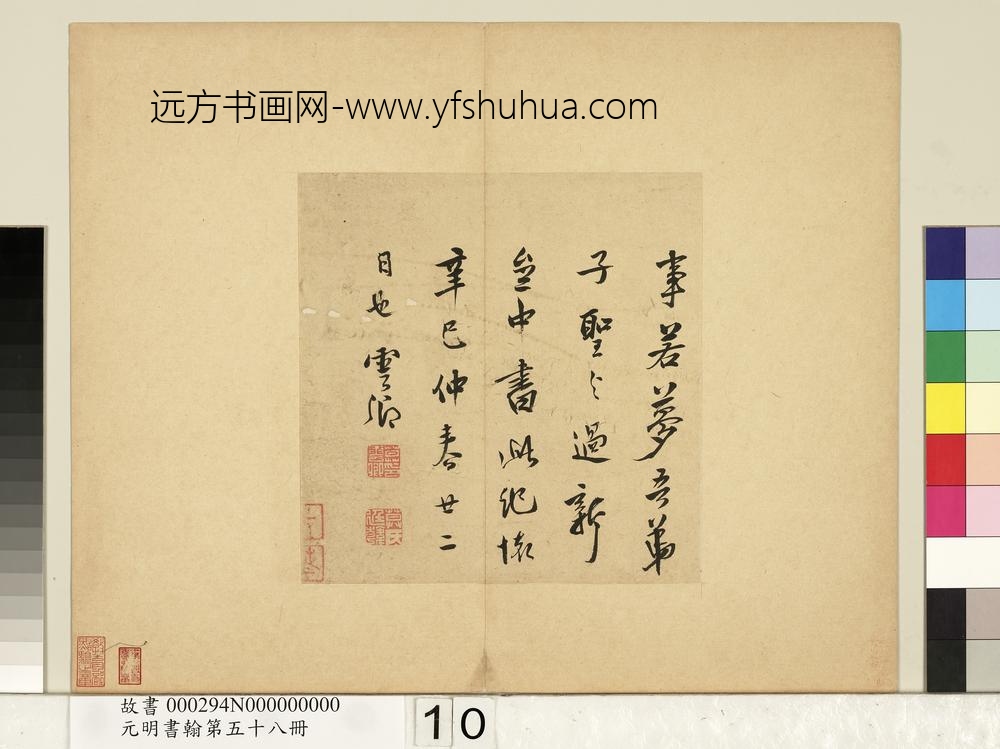 远方书画网-www.yfshuhua.com
事若夢吾弟
子聖々過新
中書此紀懷
辛巳仲春廿二
日也 雲卿
故書 000294N000000000
元明書翰第五十八冊
10